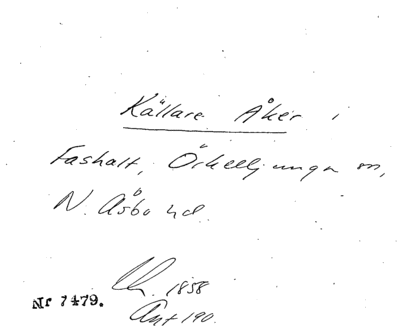 Källare Åker i
Fashalt, Örkelljunga sn,
N. Åsbo hd.
1858
Nr 7479.
Ant 190.